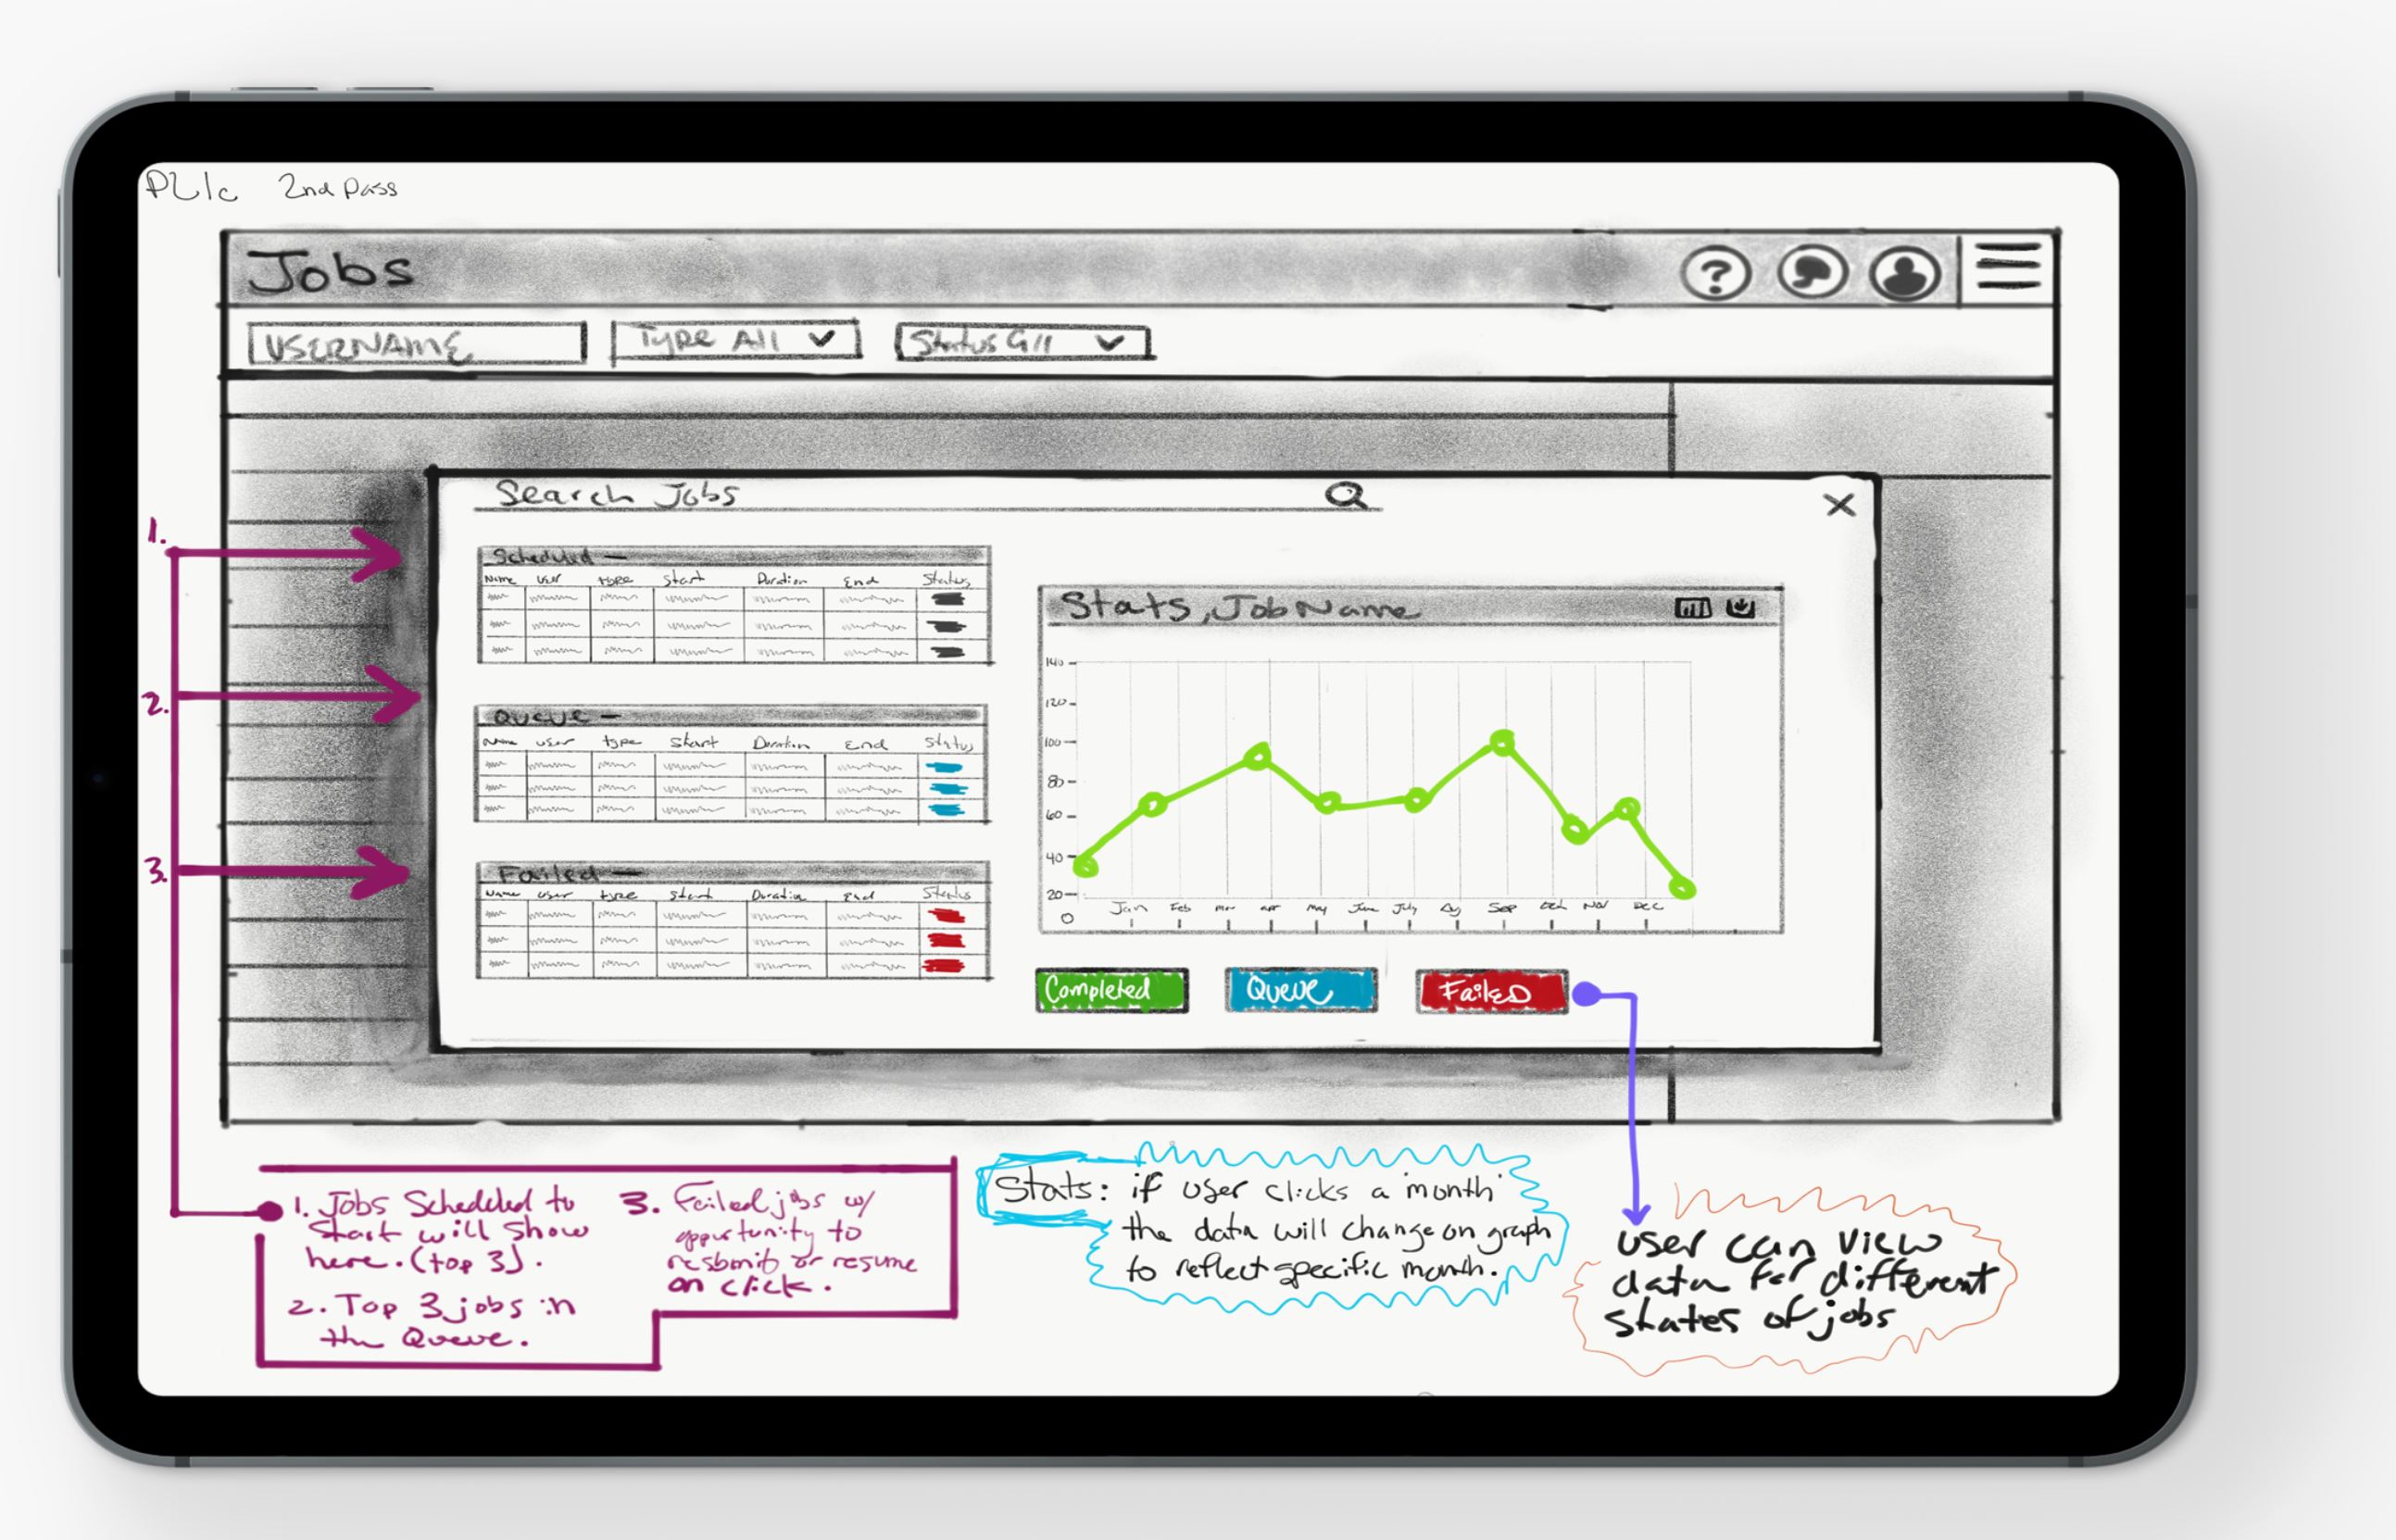 2nd Pass
Jobs
?
USERNAME
Type All
Status All
Search Jobs
X
Scheduled —
Name User type Start Duration End Status
Queue —
Name user type Start Duration End Status
Failed —
Name user type Start Duration End Status
Stats, Job Name
140
120
100
80
60
40
20
0
Jan Feb mar apr may June July Aug Sep Oct Nov Dec
Completed
Queue
Failed
1.
2.
3.
1. Jobs Scheduled to
Start will show
here. (top 3).
2. Top 3 jobs in
the Queue.
3. Failed jobs w/
oppurtunity to
resbmit or resume
on click.
Stats: if user clicks a month
the data will change on graph
to reflect specific month.
user can view
data for different
states of jobs